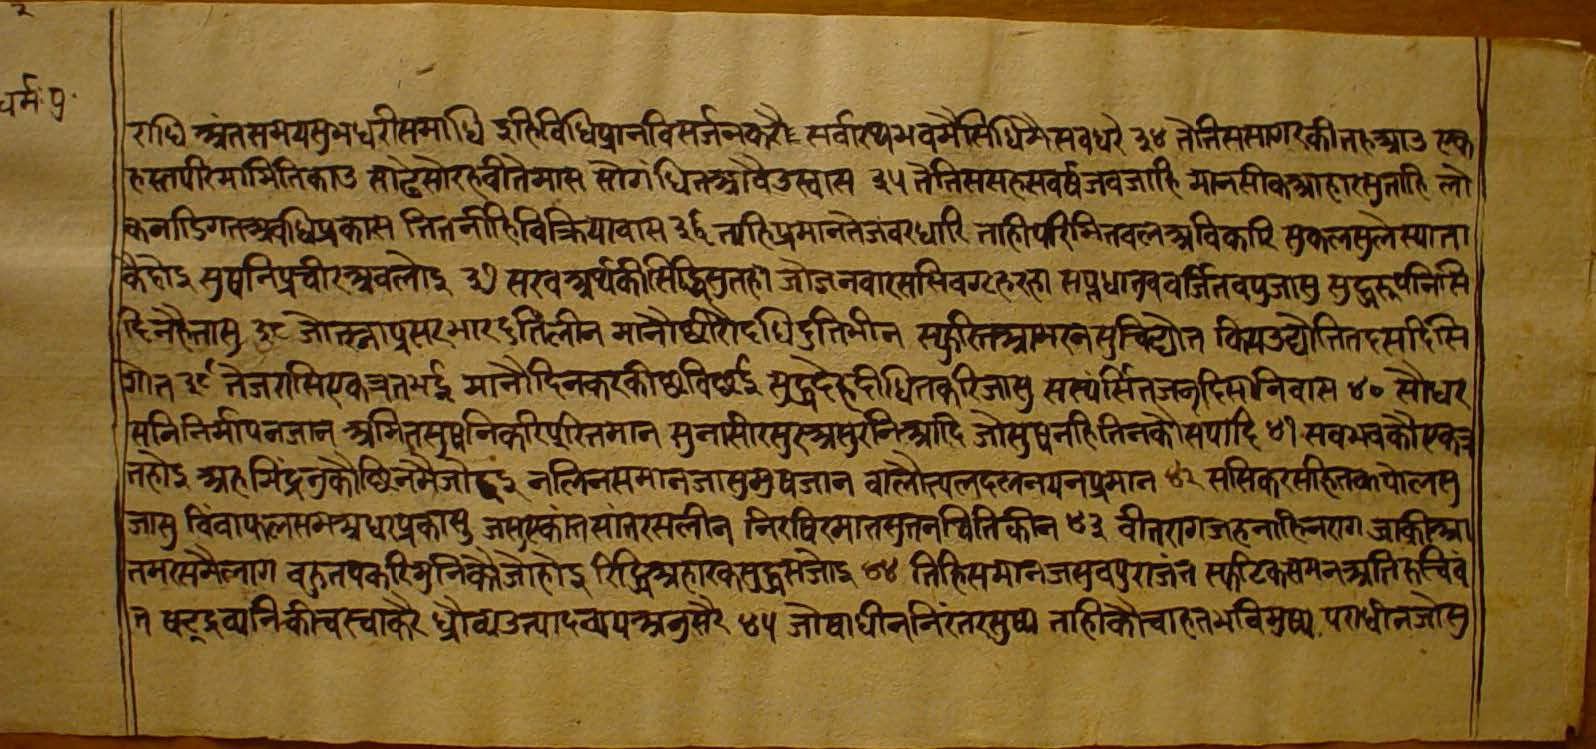 २
धर्म प्र
राधि अंतसमयसुभधरीसमाधि इहिविधिप्रानविसर्जनकरौ सर्वारथभवमैसिधिमैसवधरै ३४ तेतिससागरकीतहआउ एक
हस्तपरिमामितिकाउ साढेसोरहवीतैमास सौगंधितआवैउस्वास ३५ तेतिससहसवर्षजवजाहि मानसीकआहारसुताहि लो
कनाडिगतअवधिप्रकास तितनीहिविक्रियावास ३६ त्यहिप्रमानतेजवरधारि ताहीपरिमितवलअविकारि सुकलसुलेस्याता
कैहोइ सुषनिप्रवीरअवलोइ ३७ सरवअर्थकीसिद्धिसुतहां जोजनवारससिवगढरहा सप्तधातुववर्जितवपुजासु सुद्धरूपनिसि
दिनहैतासु ३८ जोत्स्नाप्रसरभारदुतिलीन मानौछीरोदधिदुतिभीन स्फुरितआभरनसुविद्योत कियउद्योतितदसदिसि
गोत ३९ तेजरासिएकत्रतभई मानौदिनकरकीछविछई सुद्धदेहदीधितकरिजासु सस्पर्सितजनुदिसानिवास ४० सौधर
सनिनिर्मापनजान अमितसुषनिकरिपूरितमान सुनासीरसुरअसुरनिआदि जोसुषनहितिनकौसपादि ४१ सवभवकौएकत्र
तहोइ अहमिंद्रनुकौछिनमैजोइ नलिनसमानजासुमुषजान वालोत्पलदलनयनप्रमान ४२ ससिकरसहितकपोलसु
जासु विंवाफलसमअधरप्रकासु जसएकांतसांतरसलीन निरषिरमातसुतनथितिकीन ४३ वीतरागजहनाहिनराग जाकीआ
तमरसमैलाग वहुतपकरिमुनिकौजोहोइ रिद्धिअहारकसुद्धसजोइ ४४ तिहिसमानजसुवपुराजंत स्फटिकसमनअतिहत्विवं
त षट्द्रव्यनिकीचरचाकरै ध्रौव्यउत्पादव्ययअनुसरै ४५ जोषाधीननिरंतरसुष्य ताहीकौचाहतभविमुष्य पराधीनजोसु